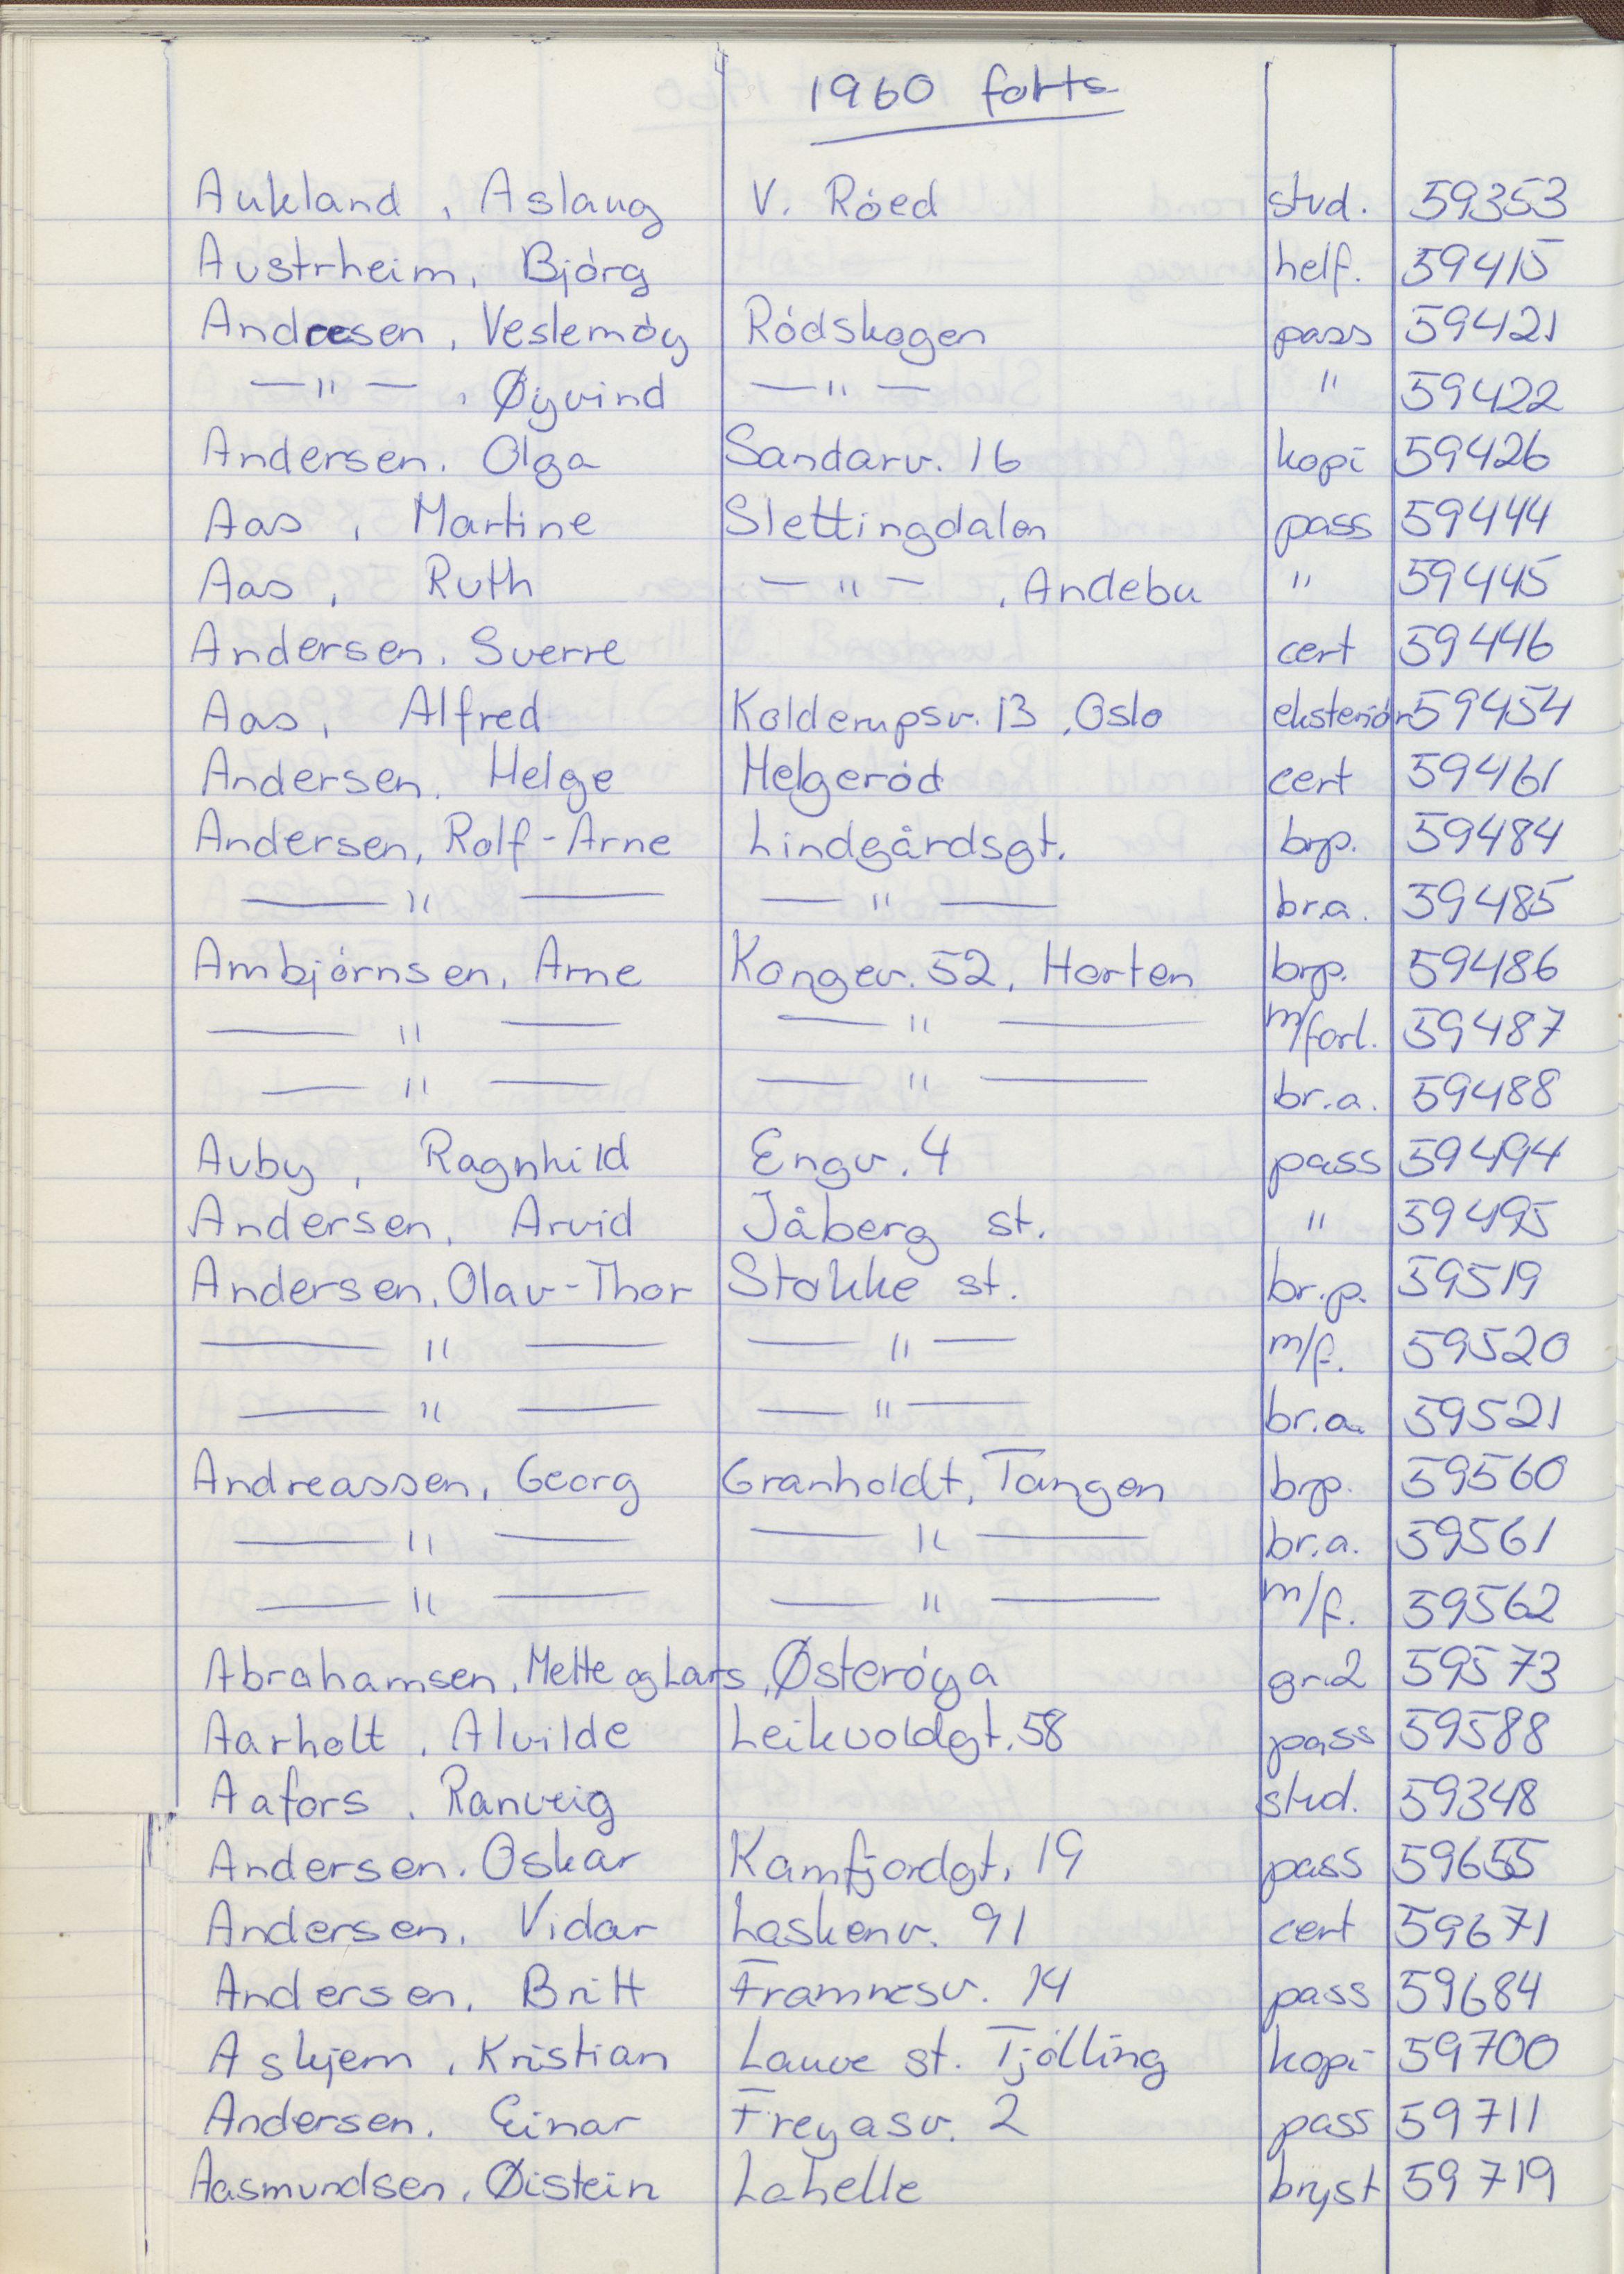 1960 forts
Aukland, Aslaug V. Röed stud. 59353
Austrheim, Bjórg helf. 59415
Andresen, Veslemöy Rödskogen pass 59421
—"— , Øyvind —"— " 59422
Andersen, Olga Sandarv. 16 kopi 59426
Aas, Martine Slettingdalen pass 59444
Aas, Ruth —"— , Andebu " 59445
Andersen, Sverre cert 59446
Aas, Alfred Kolderupsv. 13, Oslo eksteriör 59454
Andersen, Helge Helgeröd cert 59461
Andersen, Rolf-Arne Lindgårdsgt. brp. 59484
—"— —"— br.a. 59485
Ambjörnsen, Arne Kongev. 52, Horten brp. 59486
—"— —"— m/forl. 59487
—"— —"— br.a. 59488
Auby, Ragnhild Engv. 4 pass 59494
Andersen, Arvid Jåberg st. " 59495
Andersen, Olav-Thor Stokke st. br.p. 59519
—"— —"— m/f. 59520
—"— —"— br.a. 59521
Andreassen, Georg Granholdt, Tangen brp. 59560
—"— —"— br.a. 59561
—"— —"— m/f. 59562
Abrahamsen, Mette og Lars, Østeröya gr.2 59573
Aarholt, Alvilde Leikvoldgt. 58 pass 59588
Aafors, Ranveig stud. 59348
Andersen, Oskar Kamfjordgt. 19 pass 59655
Andersen, Vidar Laskenv. 91 cert 59671
Andersen, Britt Framnesv. 14 pass 59684
Askjem, Kristian Lauve st. Tjölling kopi 59700
Andersen, Einar Freyasv. 2 pass 59711
Aasmundsen, Øistein Lahelle bryst 59719